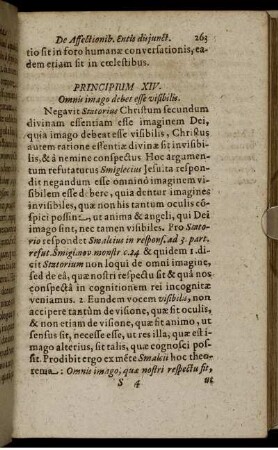 De Affectionib. Entis disjunct. 263
tio sit in foro humanæ conversationis, ea-
dem etiam sit in cœlestibus.
PRINCIPIUM XIV.
Omnis imago debet esse visibilis.
Negavit Statorius Christum secundum
divinam essentiam esse imaginem Dei,
quia imago debeat esse visibilis, Christus
autem ratione essentiæ divinæ sit invisibi-
lis, & à nemine conspectus Hoc argumen-
tum refutaturus Smiglecius Jesuita respon-
dit negandum esse omninò imaginem vi-
sibilem esse debere, quia dentur imagines
invisibiles, quæ non his tantum oculis cō-
spici possint, ut anima & angeli, qui Dei
imago sint, nec tamen visibiles. Pro Stato-
rio respondet Smalcius in respons. ad 3. part.
refut. Smigl. nov monstr c. 24 & quidem 1. di-
cit Statorium non loqui de omni imagine,
sed de eâ, quæ nostri respectu sit & quâ nos
conspectâ in cognitionem rei incognitæ
veniamus. 2. Eundem vocem visibilis, non
accipere tantùm de visione, quæ sit oculis,
& non etiam de visione, quæ sit animo, ut
sensus sit, necesse esse, ut res illa, quæ est i-
mago alterius, sit talis, quæ cognosci pos-
sit. Prodibit ergo ex mēte Smalcii hoc theo-
rema: Omnis imago, quæ nostri respectu sit,
S 4 ut